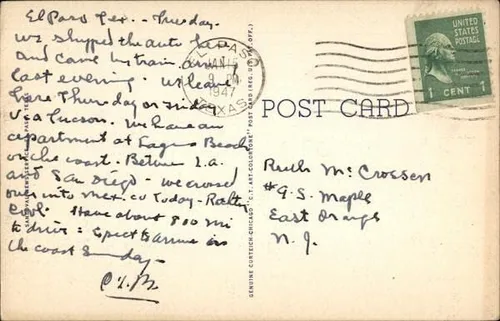 El Paso Tex. - Tuesday.
We shipped the auto here
and came by train. arrived
last evening. We leave
here Thursday or Friday
via Tucson. We have an
apartment at Laguna Beach
on the coast. Between L.A.
and San Diego - we crossed
over into Mexico today -
Cool. Have about 800 mi
to drive: Expect to arrive on
the coast Sunday -
EL PASO
JAN
1947
TEXAS
UNITED
STATES
POSTAGE
1 CENT 1
POST CARD
Ruth McCrossen
#9 S. Maple
East Orange
N. J.
GENUINE CURTEICH-CHICAGO "C.T. ART-COLORTONE" POST CARD (REG. U.S. PAT. OFF.)